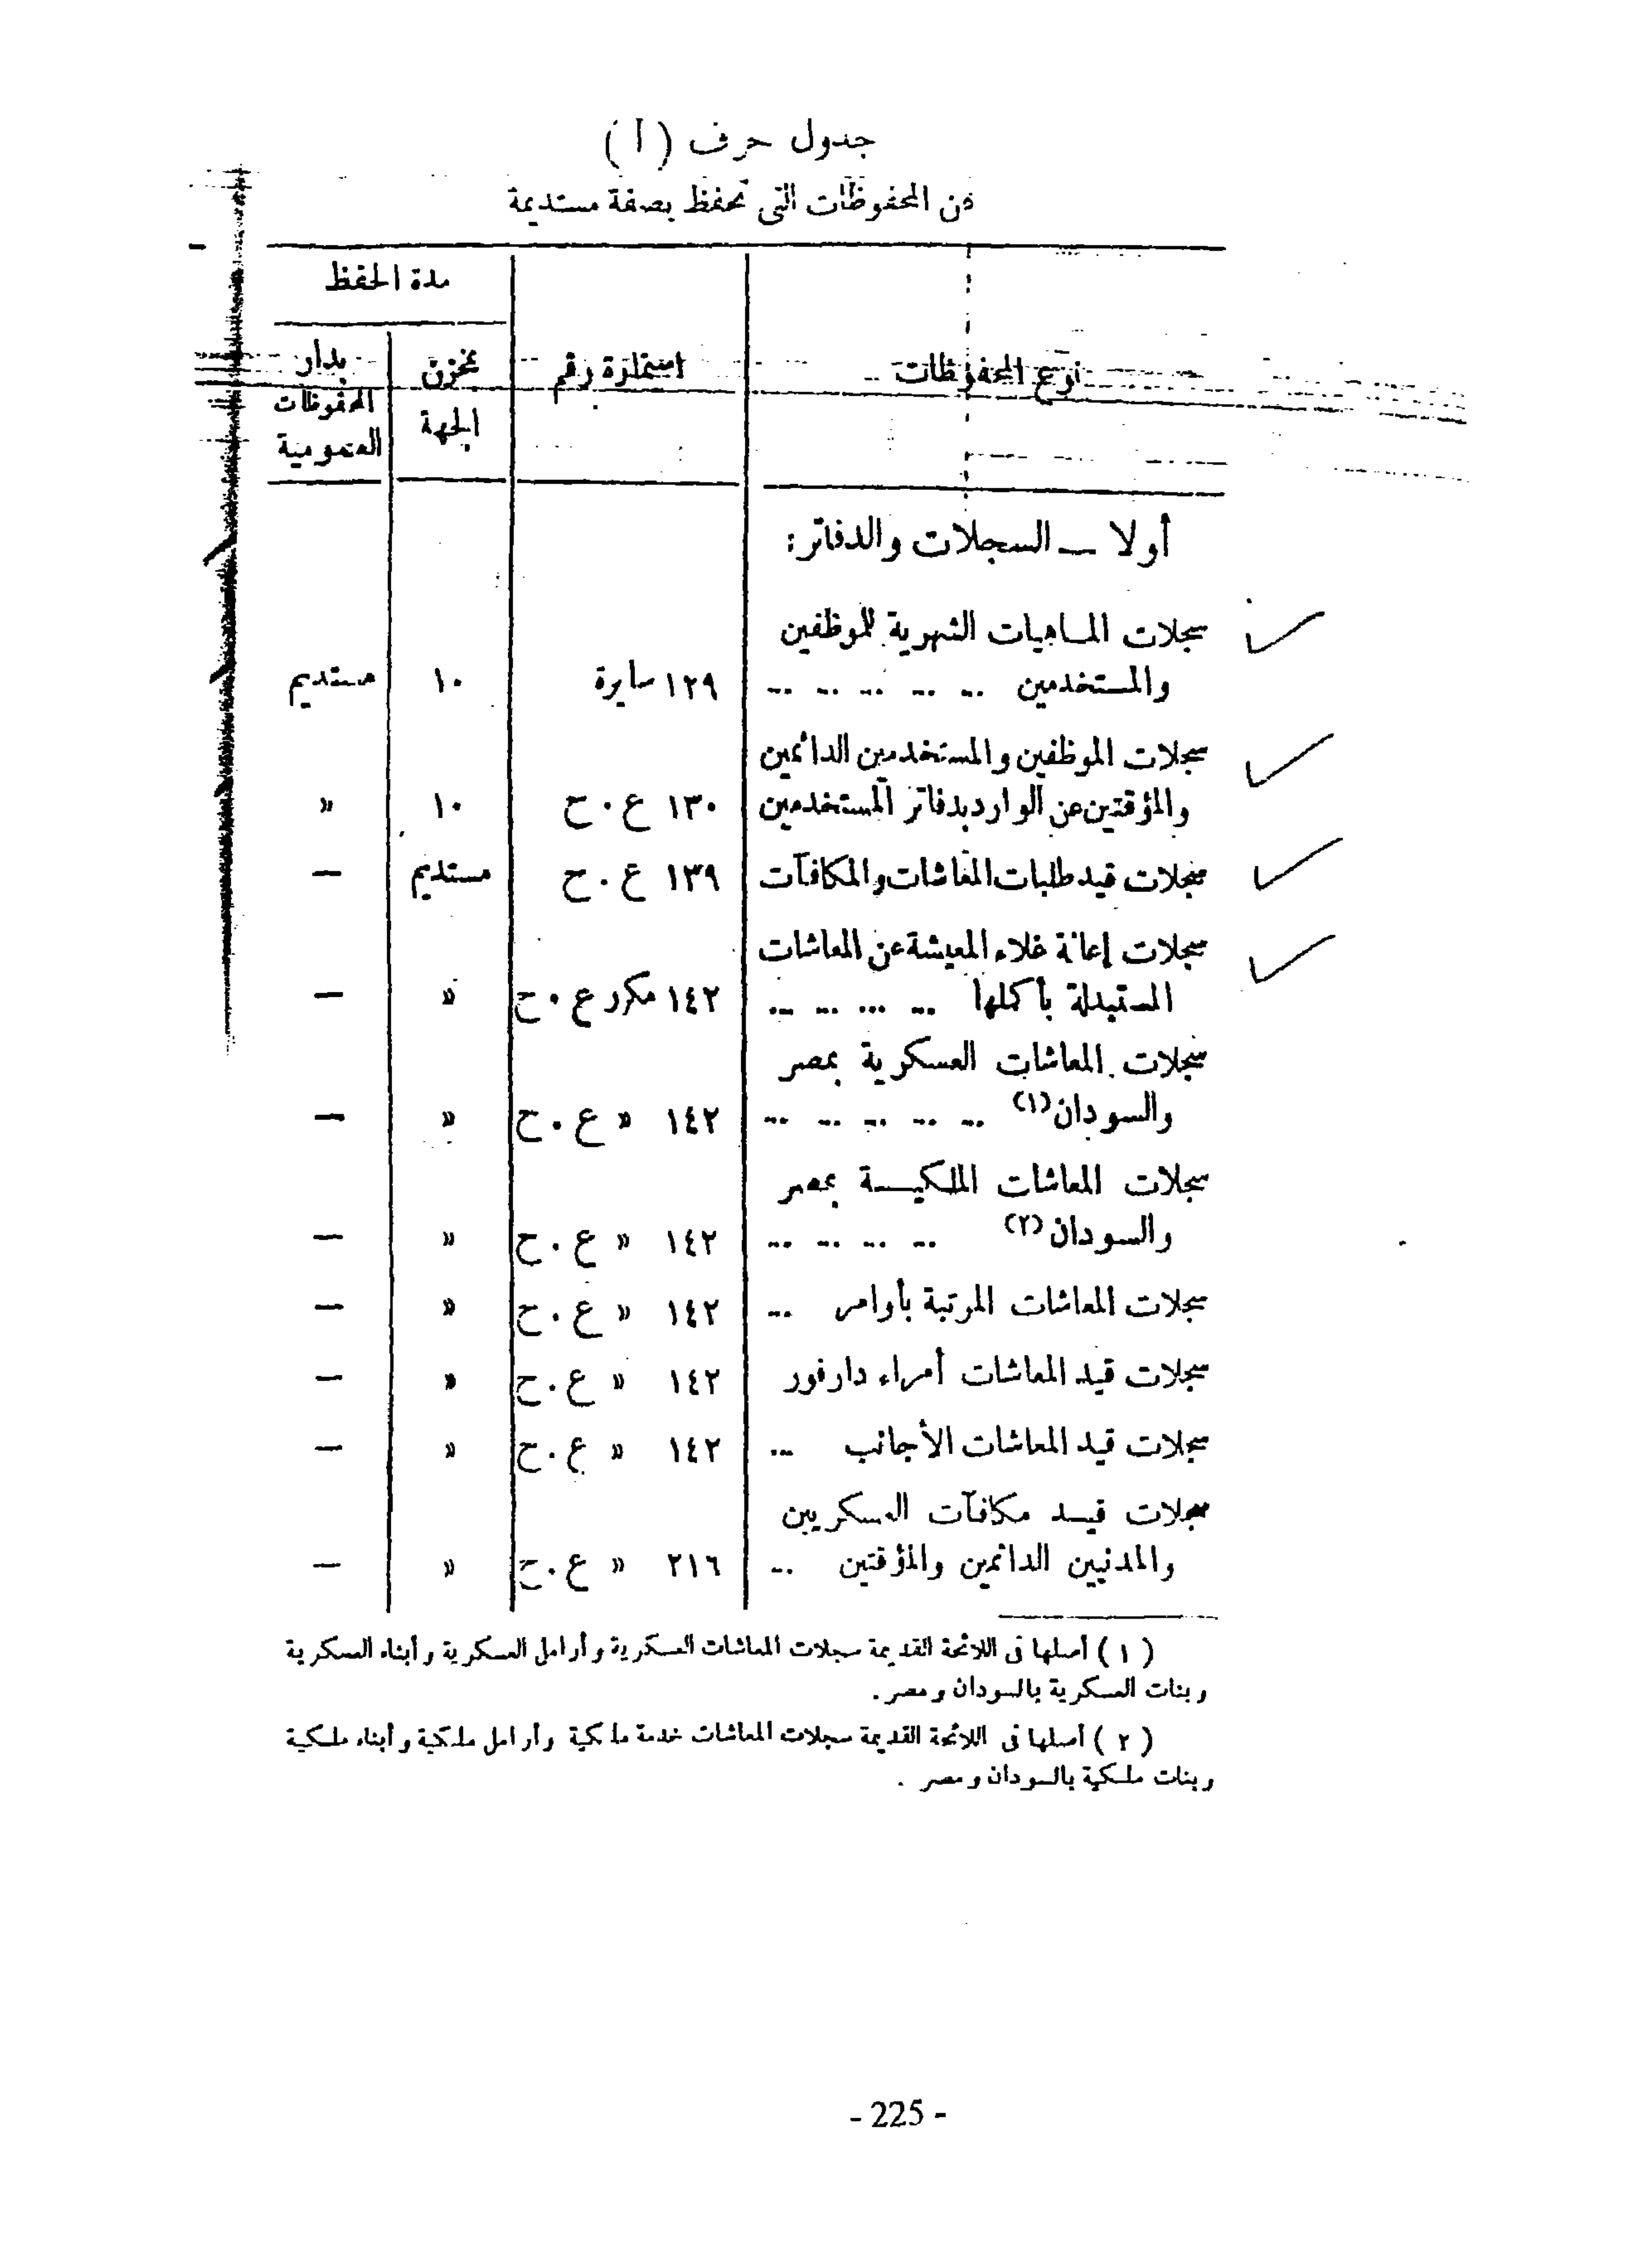 جدول حرف (أ)
عن المحفوظات التى تحفظ بصفة مستديمة
نوع المحفوظات استمارة رقم مدة الحفظ
بمخزن الجهة بدار المحفوظات العمومية
أولا — السجلات والدفاتر:
سجلات الماهيات الشهرية للموظفين
والمستخدمين ... ... ... ... ... ١٢٩ سايرة ١٠ مستديم
سجلات الموظفين والمستخدمين الدائمين
والمؤقتين عن الوارد بدفاتر المستخدمين ١٣٠ ع . ح ١٠ »
سجلات قيد طلبات المعاشات والمكافآت ١٣٩ ع . ح مستديم —
سجلات إعانة غلاء المعيشة عن المعاشات
المستبدلة بأكملها ... ... ... ... ١٤٢ مكرر ع . ح » —
سجلات المعاشات العسكرية بمصر
والسودان (١) ... ... ... ... ... ١٤٢ » ع . ح » —
سجلات المعاشات الملكية بمصر
والسودان (٢) ... ... ... ... ١٤٢ » ع . ح » —
سجلات المعاشات المرتبة بأوامر ... ١٤٢ » ع . ح » —
سجلات قيد المعاشات أمراء دارفور ١٤٢ » ع . ح » —
سجلات قيد المعاشات الأجانب ... ١٤٢ » ع . ح » —
سجلات قيد مكافآت العسكريين
والمدنيين الدائمين والمؤقتين ... ٢١٦ » ع . ح » —
(١) أصلها فى اللائحة القديمة سجلات المعاشات العسكرية وأرامل العسكرية وأبناء العسكرية
وبنات العسكرية بالسودان ومصر .
(٢) أصلها فى اللائحة القديمة سجلات المعاشات خدمة ملكية وأرامل ملكية وأبناء ملكية
وبنات ملكية بالسودان ومصر .
- 225 -